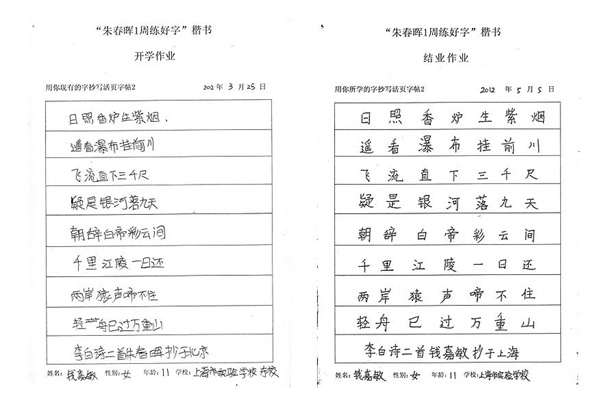 “朱春晖1周练好字”楷书
开学作业
用你现有的字抄写活页字帖2 202 年 3 月 25 日
日照香炉生紫烟.
遥看瀑布挂前川
飞流直下三千尺
疑是银河落九天
朝辞白帝彩云间
千里江陵一日还
两岸猿声啼不住
轻舟已过万重山
李白诗二首朱春晖抄于北京
姓名:钱嘉敏 性别:女 年龄:11 学校:上海市实验学校东校
“朱春晖1周练好字”楷书
结业作业
用你所学的字抄写活页字帖2 2012 年 5 月 5 日
日照香炉生紫烟
遥看瀑布挂前川
飞流直下三千尺
疑是银河落九天
朝辞白帝彩云间
千里江陵一日还
两岸猿声啼不住
轻舟已过万重山
李白诗二首钱嘉敏抄于上海
姓名:钱嘉敏 性别:女 年龄:11 学校:上海市实验学校